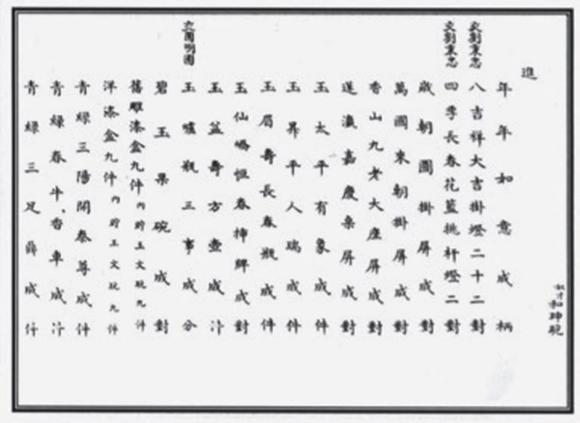 奴才和珅跪
進
年年如意成柄
交劉秉忠 八吉祥大吉掛燈二十二對
交劉秉忠 四季長春花籃挑杆燈二對
歲朝圖掛屏成對
萬國來朝掛屏成對
香山九老大座屏成對
蓬瀛嘉慶桌屏成對
玉太平有象成件
玉昇平人瑞成件
玉眉壽長春瓶成件
玉仙恒春捧觶成對
玉益壽方壺成件
交圓明園 玉爐瓶三事成分
碧玉果碗成對
舊雕漆盒九件 內貯玉文玩九件
洋漆盒九件 內貯玉文玩九件
青綠三陽開泰尊成件
青綠春牛香車成件
青綠三足鼎成件